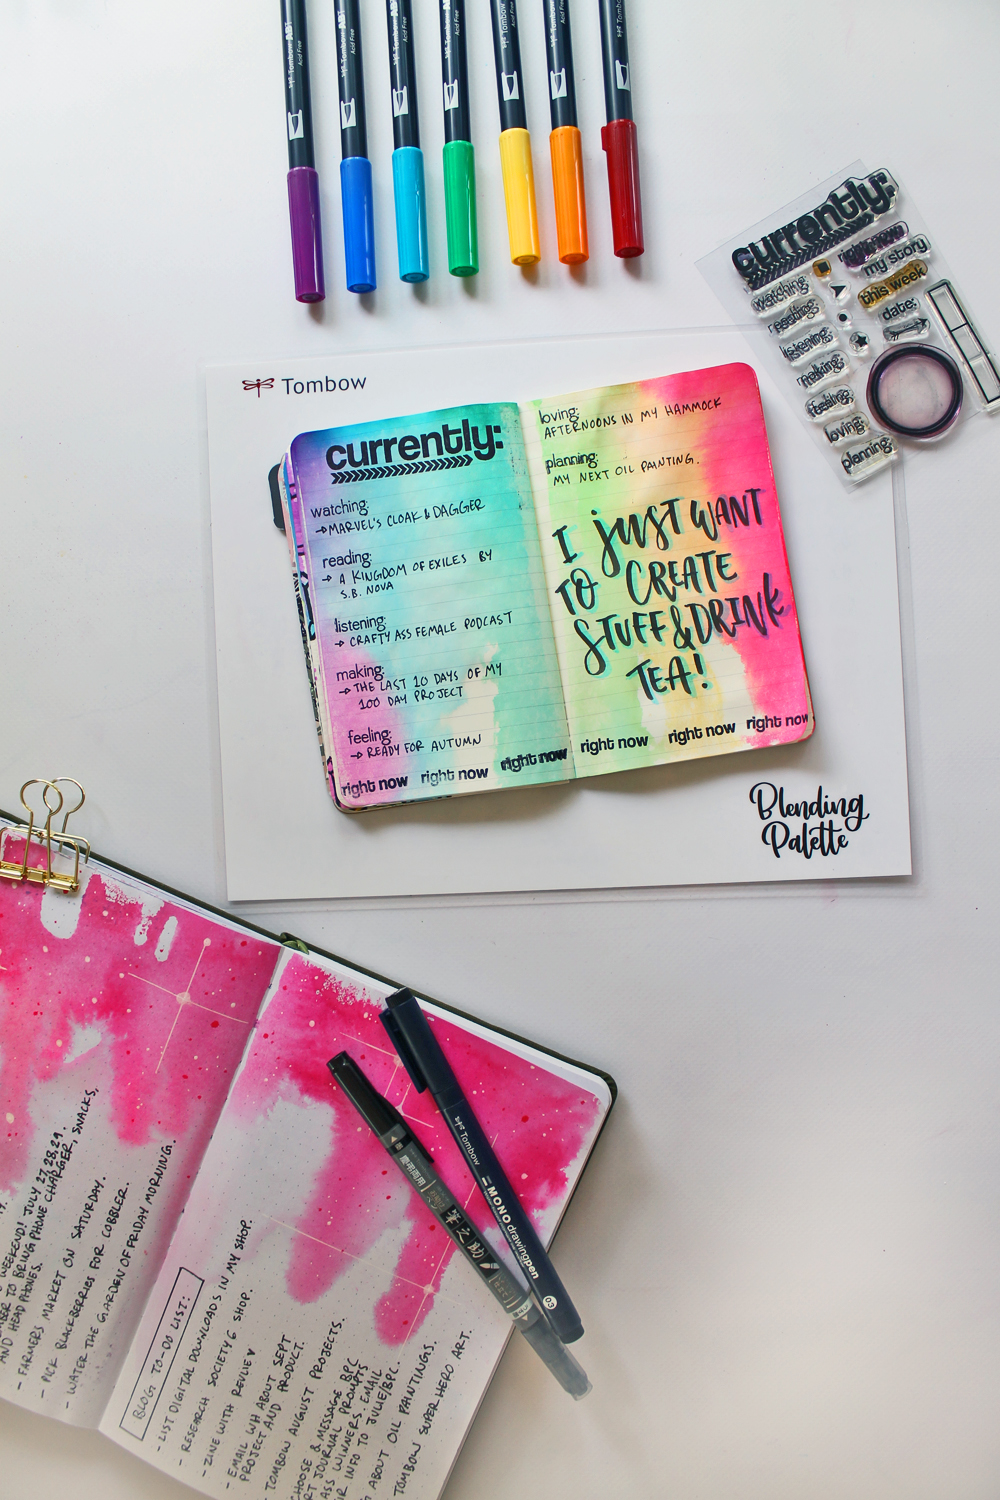 Tombow ABT
Acid Free
Tombow ABT
Acid Free
Tombow ABT
Acid Free
Tombow ABT
Acid Free
Tombow
currently:
right now
my story
watching:
this week
reading:
date:
listening:
making:
feeling:
loving:
planning:
Tombow
currently:
watching:
→ MARVEL'S CLOAK & DAGGER
reading:
→ A KINGDOM OF EXILES BY
S.B. NOVA
listening:
→ CRAFTY ASS FEMALE PODCAST
making:
→ THE LAST 10 DAYS OF MY
100 DAY PROJECT
feeling:
→ READY FOR AUTUMN
right now right now right now
loving:
AFTERNOONS IN MY HAMMOCK
planning:
MY NEXT OIL PAINTING.
I JUST WANT
TO CREATE
STUFF & DRINK
TEA!
right now right now right now
Blending
Palette
WEEKEND! JULY 27, 28, 29.
TO BRING PHONE CHARGER, SNACKS,
AND HEADPHONES.
- FARMERS MARKET ON SATURDAY.
- PICK BLACKBERRIES FOR COBBLER.
- WATER THE GARDEN OF FRIDAY MORNING.
BLOG TO-DO LIST:
- LIST DIGITAL DOWNLOADS IN MY SHOP.
- RESEARCH SOCIETY 6 SHOP.
- ZINE WITH REVLIE
- EMAIL WH ABOUT SEPT
PROJECT AND PRODUCT.
TOMBOW AUGUST PROJECTS.
CHOOSE & MESSAGE BPC
JOURNAL PROMPTS
WINNERS. EMAIL
INFO TO JULIE/BPC.
ABOUT OIL PAINTINGS.
TOMBOW SUPER HERO ART.
Tombow
MONO drawing pen
03
筆之助